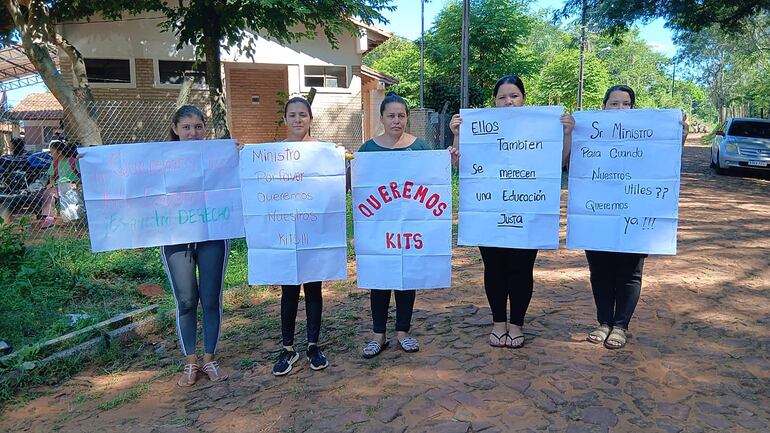 ¡Es nuestro DERECHO!
Ministro
Por favor
Queremos
Nuestros
Kits!!!
QUEREMOS
KITS
Ellos
Tambien
Se merecen
una Educación
Justa
Sr Ministro
Para Cuando
Nuestros
Utiles??
Queremos
ya!!!